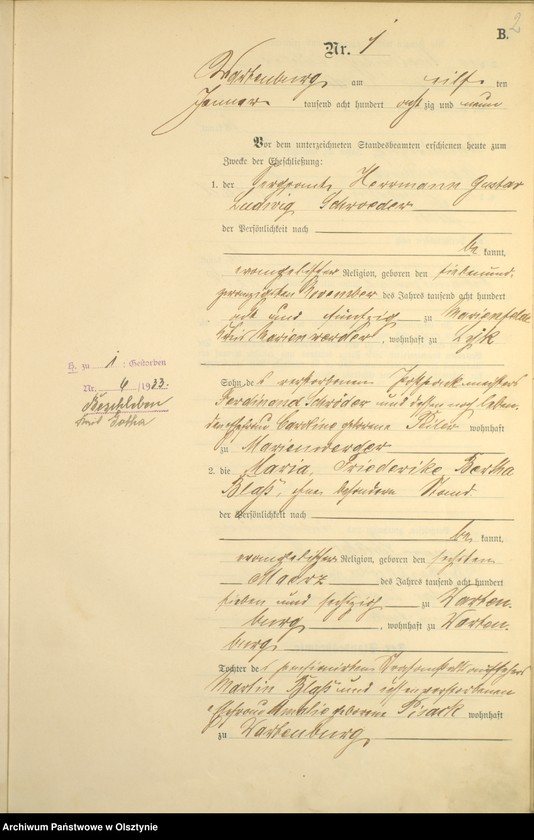 2
B.
Nr. 1
Wartenburg am eilf ten
Januar tausend acht hundert achtzig und neun
Vor dem unterzeichneten Standesbeamten erschienen heute zum
Zwecke der Eheschließung:
1. der Sergeant Herrmann Gustav
Ludwig Schroeder
der Persönlichkeit nach
be kannt,
evangelischer Religion, geboren den siebenund
zwanzigsten November des Jahres tausend acht hundert
und fünfzig zu Marienfelde
Kreis Marienwerder, wohnhaft zu Lyk
H. zu 1: Gestorben
Nr. 4/1933.
Kreis Gotha
Sohn des verstorbenen
Ferdinand Schröder und dessen noch leben
den Ehefrau Caroline geborene wohnhaft
zu Marienwerder
2. die Maria, Friederike Bertha
Blaß, ohne besonderen Stand
der Persönlichkeit nach
be kannt,
evangelischer Religion, geboren den sechsten
Maerz des Jahres tausend acht hundert
sieben und sechszig zu Warten
burg, wohnhaft zu Warten
burg
Tochter des pensionirten Strafanstaltsaufsehers
Martin Blaß und dessen verstorbenen
Ehefrau Amalie geborene Pisack wohnhaft
zu Wartenburg
Archiwum Państwowe w Olsztynie